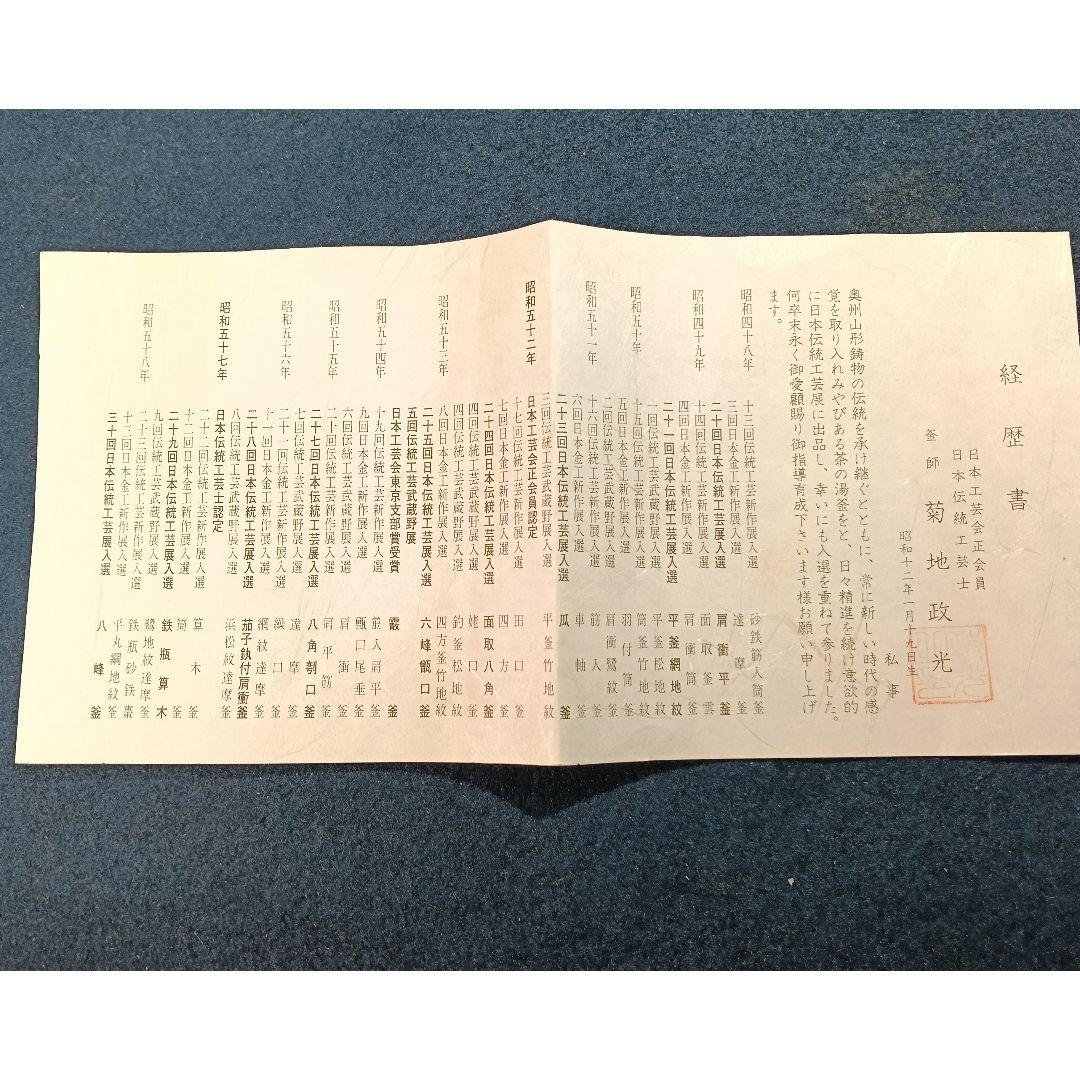 経歴書
日本工芸会正会員
日本伝統工芸士
釜師 菊地政光
昭和十二年一月十九日生
私事
奥州山形鋳物の伝統を承け継ぐとともに、常に新しい時代の感
覚を取り入れみやびある茶の湯釜をと、日々精進を続け意欲的
に日本伝統工芸展に出品し、幸いにも入選を重ねて参りました。
何卒末永く御愛顧賜り御指導育成下さいます様お願い申し上げ
ます。
昭和四十八年 十三回日本伝統工芸新作展入選 砂鉄筋入筒釜
三回日本金工新作展入選 達摩釜
二十回日本伝統工芸展入選 肩衝平釜
昭和四十九年 四回日本金工新作展入選 面取釜雲
四回日本金工新作展入選 肩衝筒釜
二十一回日本伝統工芸展入選 平釜網地紋
昭和五十年 一回伝統工芸武蔵野展入選 平釜松地紋
十五回伝統工芸新作展入選 筒釜竹地紋
五回日本金工新作展入選 羽付筒釜
二回伝統工芸武蔵野展入選 肩衝鷺紋釜
昭和五十一年 十六回伝統工芸新作展入選 筋入釜
六回日本金工新作展入選 車軸釜
二十三回日本伝統工芸展入選 瓜釜
三回伝統工芸武蔵野展入選 平釜竹地紋
昭和五十二年 日本工芸会正会員認定
十七回伝統工芸新作展入選 田口釜
七回日本金工新作展入選 四方釜
二十四回日本伝統工芸展入選 面取八角釜
四回伝統工芸武蔵野展入選 姥口釜
四回伝統工芸武蔵野展入選 釣釜松地紋
昭和五十三年 八回日本金工新作展入選 四方釜竹地紋
二十五回日本伝統工芸展入選 六峰甑口釜
五回伝統工芸武蔵野展
日本工芸会東京支部賞受賞 霰釜
昭和五十四年 十九回伝統工芸新作展入選 筋入肩平釜
九回日本金工新作展入選 甑口尾垂釜
六回伝統工芸武蔵野展入選 肩衝釜
昭和五十五年 二十回伝統工芸新作展入選 肩平筋釜
二十七回日本伝統工芸展入選 八角刳口釜
十回日本金工新作展入選 達摩釜
昭和五十六年 二十一回伝統工芸新作展入選 繰口釜
十一回日本金工新作展入選 網紋達摩釜
二十八回日本伝統工芸展入選 茄子釻付肩衝釜
八回伝統工芸武蔵野展入選 浜松紋達摩釜
昭和五十七年 日本伝統工芸士認定
二十二回伝統工芸新作展入選 算木釜
十二回日本金工新作展入選 筒釜
二十九回日本伝統工芸展入選 鉄瓶算木
昭和五十八年 九回伝統工芸武蔵野展入選 鷺地紋達摩釜
二十三回伝統工芸新作展入選 鉄瓶砂鉄棗
十三回日本金工新作展入選 平丸網地紋
三十回日本伝統工芸展入選 八峰釜